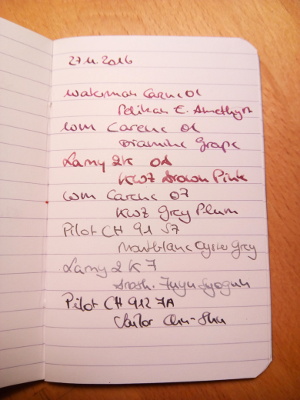 27.11.2016
Waterman Carene 01
Pelikan E. Amethyst
WM Carene 01
Diamine Grape
Lamy 2K 01
KWZ Brown Pink
WM Carene 07
KWZ Grey Plum
Pilot CH 91 57
Montblanc Grey
Lamy 2K 7
Irosh. Fuyu Syogun
Pilot CH 912 7A
Sailor Chu-Shu